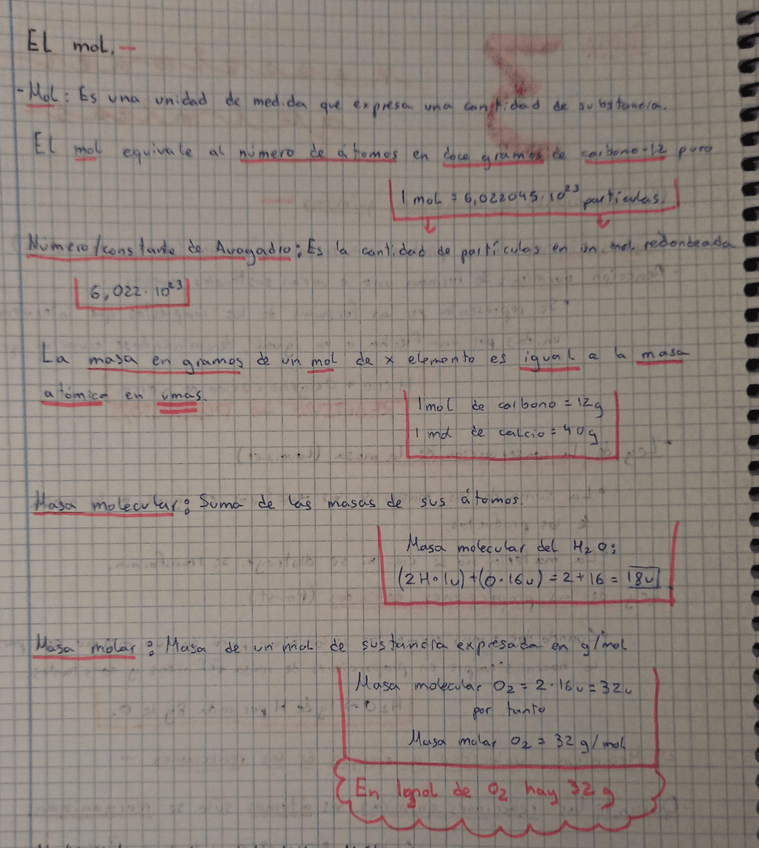 El mol.-
- Mol: Es una unidad de medida que expresa una cantidad de substancia.
El mol equivale al número de átomos en doce gramos de carbono-12 puro
1 mol = 6,022045·10²³ partículas.
Número/constante de Avogadro: Es la cantidad de partículas en un mol redondeada
6,022·10²³
La masa en gramos de un mol de x elemento es igual a la masa
atómica en umas.
1 mol de carbono = 12g
1 mol de calcio = 40g
Masa molecular: Suma de las masas de sus átomos.
Masa molecular del H₂O:
(2H·1u)+(O·16u) = 2+16 = 18u
Masa molar: Masa de un mol de sustancia expresada en g/mol
Masa molecular O₂ = 2·16u = 32u
por tanto
Masa molar O₂ = 32 g/mol
En 1 mol de O₂ hay 32 g